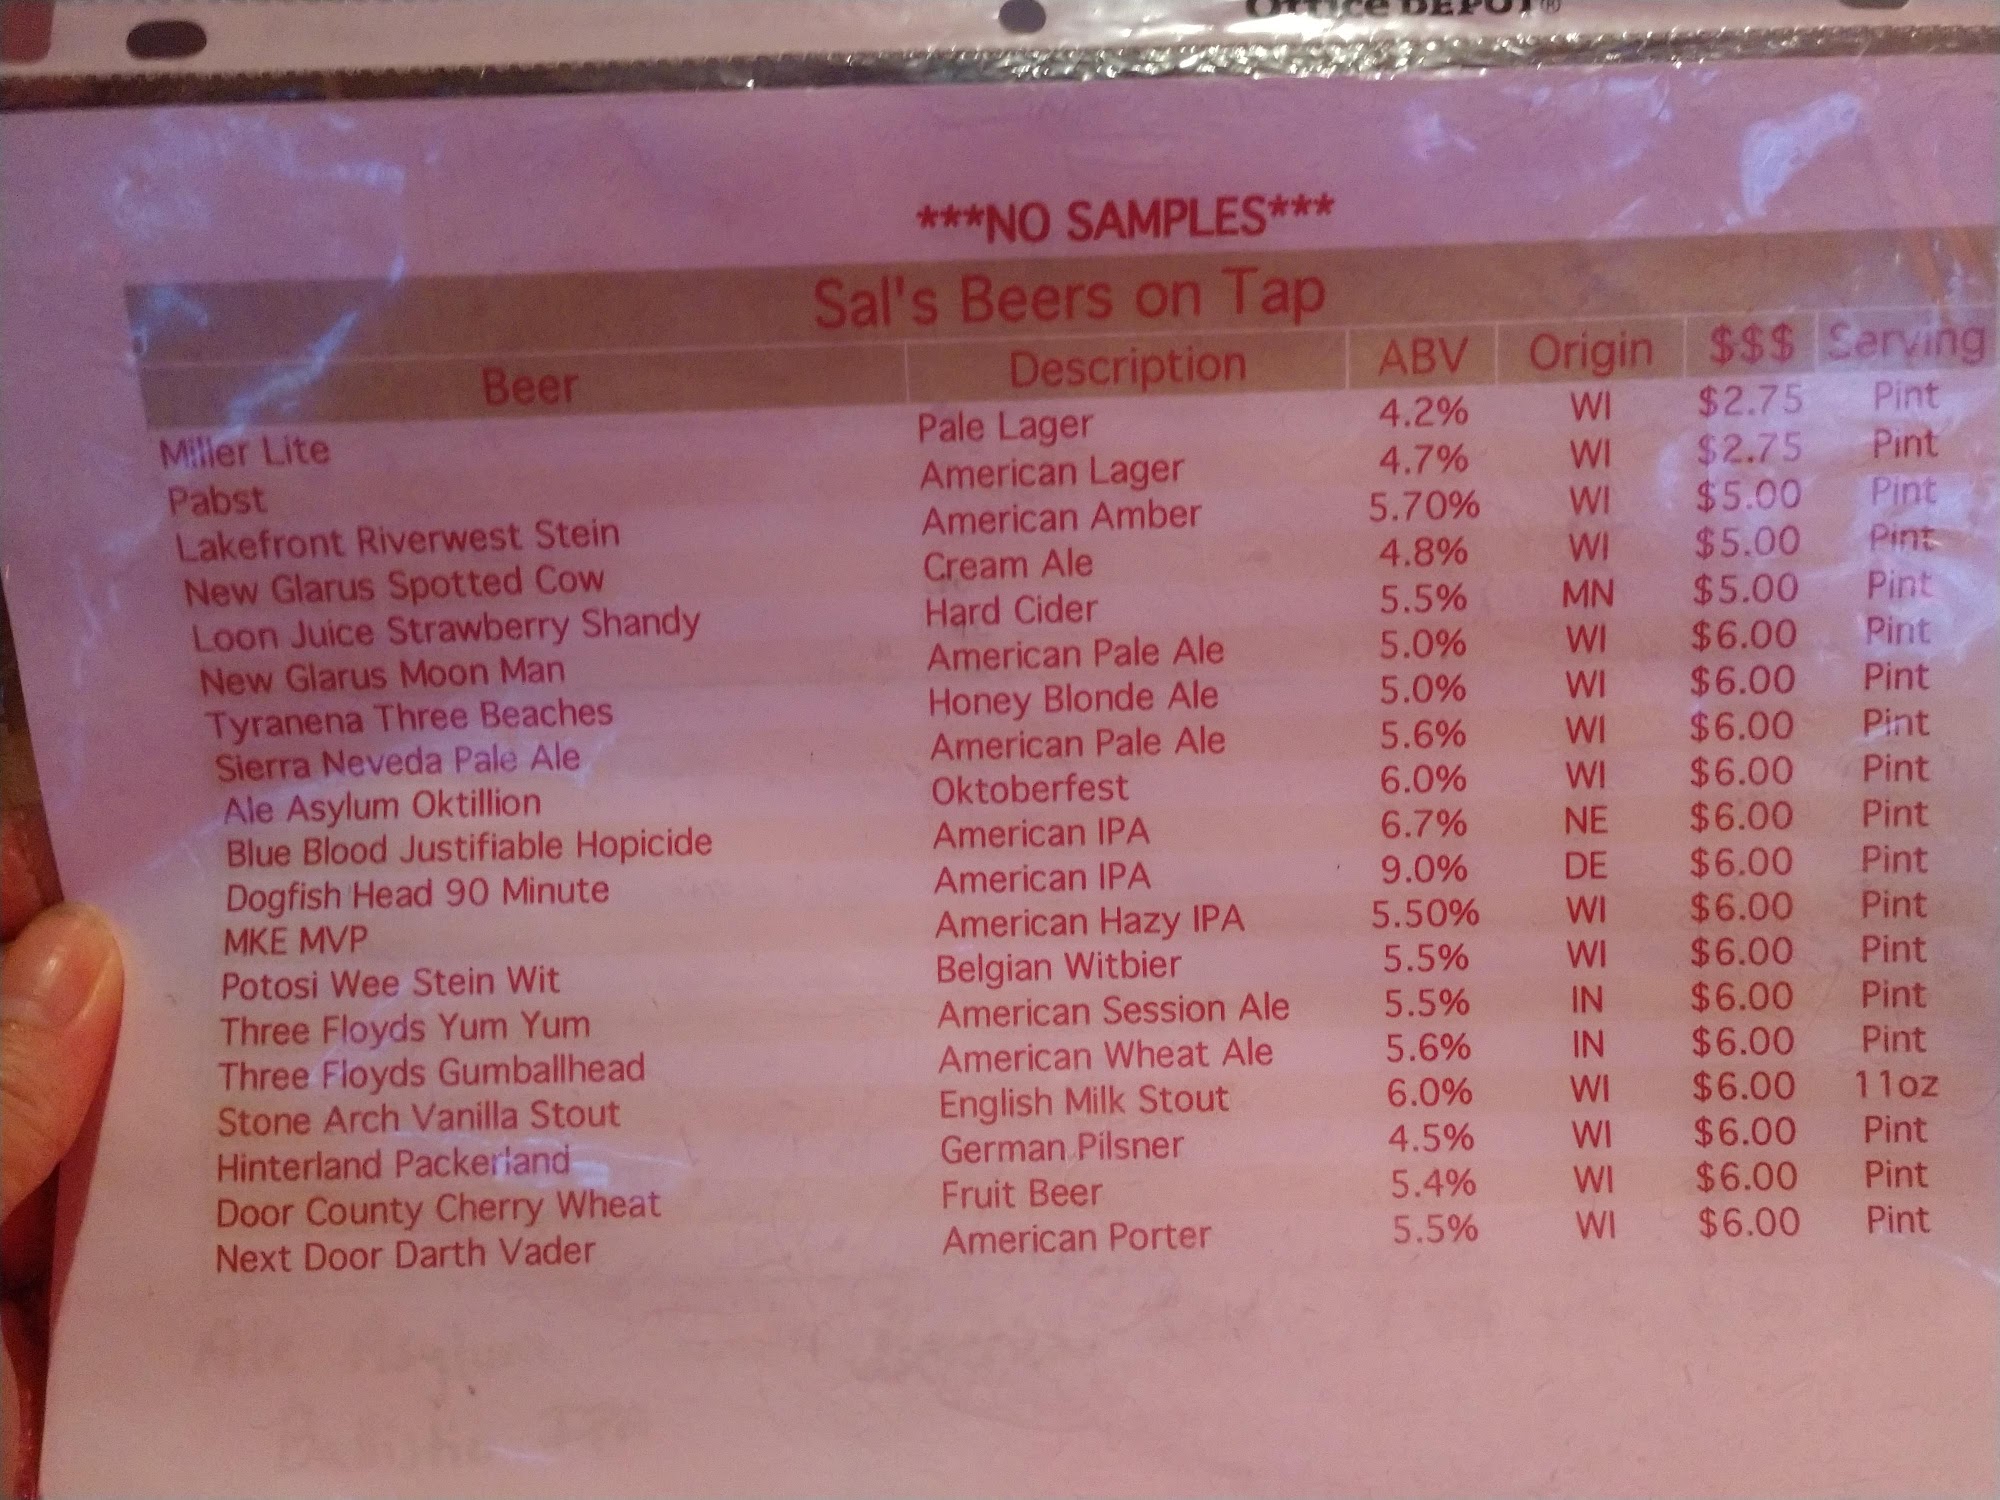 Office DEPOT®
***NO SAMPLES***
Sal's Beers on Tap
Beer Description ABV Origin $$$ Serving
Miller Lite Pale Lager 4.2% WI $2.75 Pint
Pabst American Lager 4.7% WI $2.75 Pint
Lakefront Riverwest Stein American Amber 5.70% WI $5.00 Pint
New Glarus Spotted Cow Cream Ale 4.8% WI $5.00 Pint
Loon Juice Strawberry Shandy Hard Cider 5.5% MN $5.00 Pint
New Glarus Moon Man American Pale Ale 5.0% WI $6.00 Pint
Tyranena Three Beaches Honey Blonde Ale 5.0% WI $6.00 Pint
Sierra Neveda Pale Ale American Pale Ale 5.6% WI $6.00 Pint
Ale Asylum Oktillion Oktoberfest 6.0% WI $6.00 Pint
Blue Blood Justifiable Hopicide American IPA 6.7% NE $6.00 Pint
Dogfish Head 90 Minute American IPA 9.0% DE $6.00 Pint
MKE MVP American Hazy IPA 5.50% WI $6.00 Pint
Potosi Wee Stein Wit Belgian Witbier 5.5% WI $6.00 Pint
Three Floyds Yum Yum American Session Ale 5.5% IN $6.00 Pint
Three Floyds Gumballhead American Wheat Ale 5.6% IN $6.00 Pint
Stone Arch Vanilla Stout English Milk Stout 6.0% WI $6.00 11oz
Hinterland Packerland German Pilsner 4.5% WI $6.00 Pint
Door County Cherry Wheat Fruit Beer 5.4% WI $6.00 Pint
Next Door Darth Vader American Porter 5.5% WI $6.00 Pint